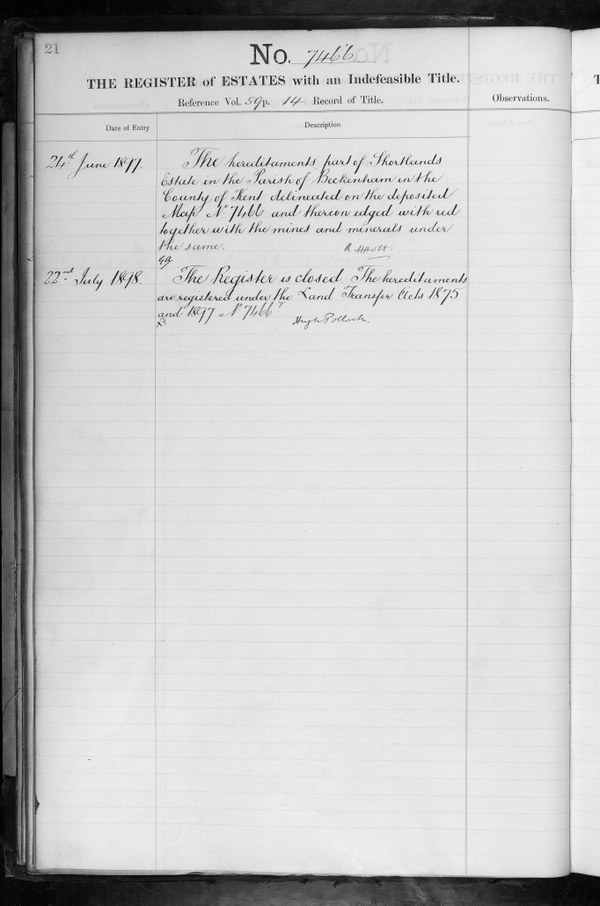 21
No. 7466
THE REGISTER of ESTATES with an Indefeasible Title.
Reference Vol. 59 p. 14 Record of Title.
Observations.
Date of Entry
Description
24th June 1877.
The hereditaments part of Shortlands
Estate in the Parish of Beckenham in the
County of Kent delineated on the deposited
Map No 7466 and thereon edged with red
together with the mines and minerals under
the same.
22nd July 1898.
The Register is closed. The hereditaments
are registered under the Land Transfer Acts 1875
and 1897 No 7466
Hugh Pollock.